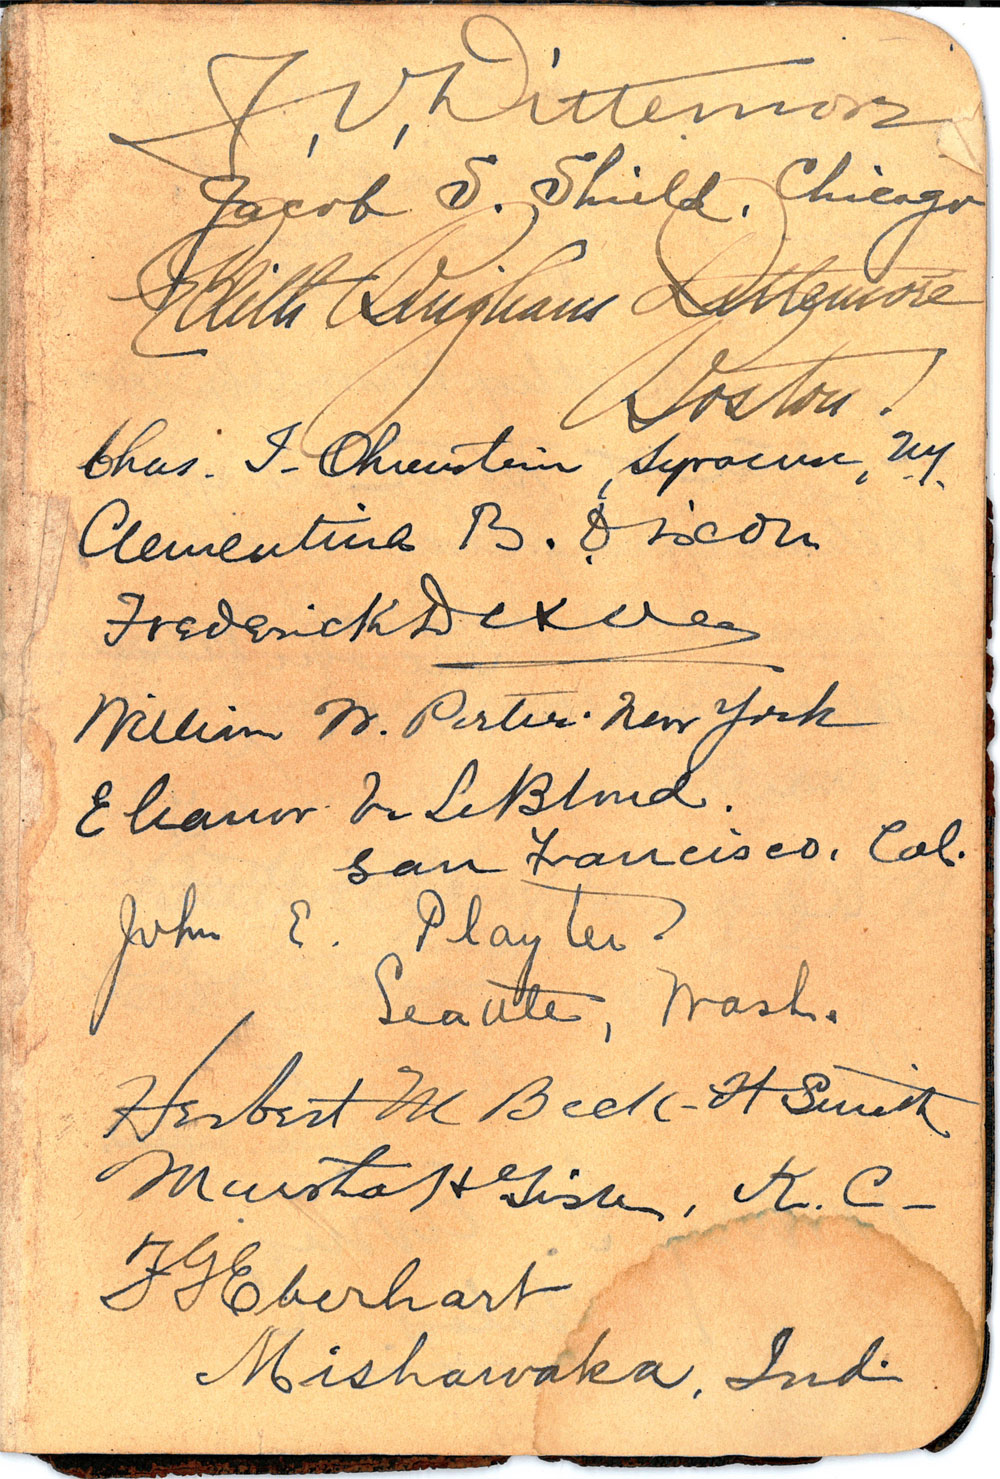 J, V, Dittemore
Jacob S. Shield. Chicago
Edith Bingham Dittemore
Boston!
Chas. I- Ohrenstein, Syracuse, N.Y.
Clementina B. Dixon
Frederick
William W. Porter. New York
Eleanor LeBlond.
San Francisco. Cal.
John E. Playter.
Seattle, Wash.
Herbert M Beck - H Smith
H K. C -
F G Eberhart
Mishawaka, Ind.